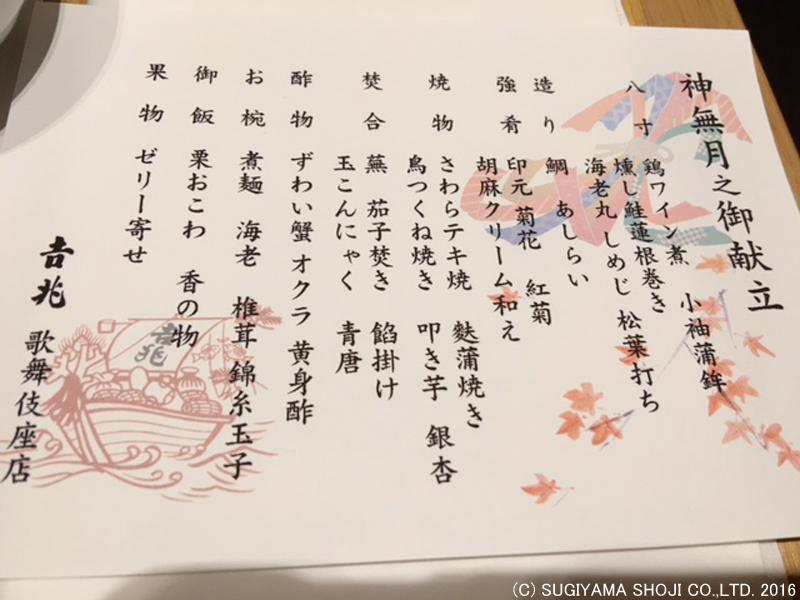 神無月之御献立
八寸 鶏ワイン煮 小袖蒲鉾
燻し鮭蓮根巻き
海老丸 しめじ 松葉打ち
造り 鯛 あしらい
強肴 印元 菊花 紅菊
胡麻クリーム和え
焼物 さわらテキ焼 麩蒲焼き
鳥つくね焼き 叩き芋 銀杏
焚合 蕪 茄子焚き 餡掛け
玉こんにゃく 青唐
酢物 ずわい蟹 オクラ 黄身酢
お椀 煮麺 海老 椎茸 錦糸玉子
御飯 栗おこわ 香の物
果物 ゼリー寄せ
吉兆 歌舞伎座店
吉兆
(C) SUGIYAMA SHOJI CO.,LTD. 2016